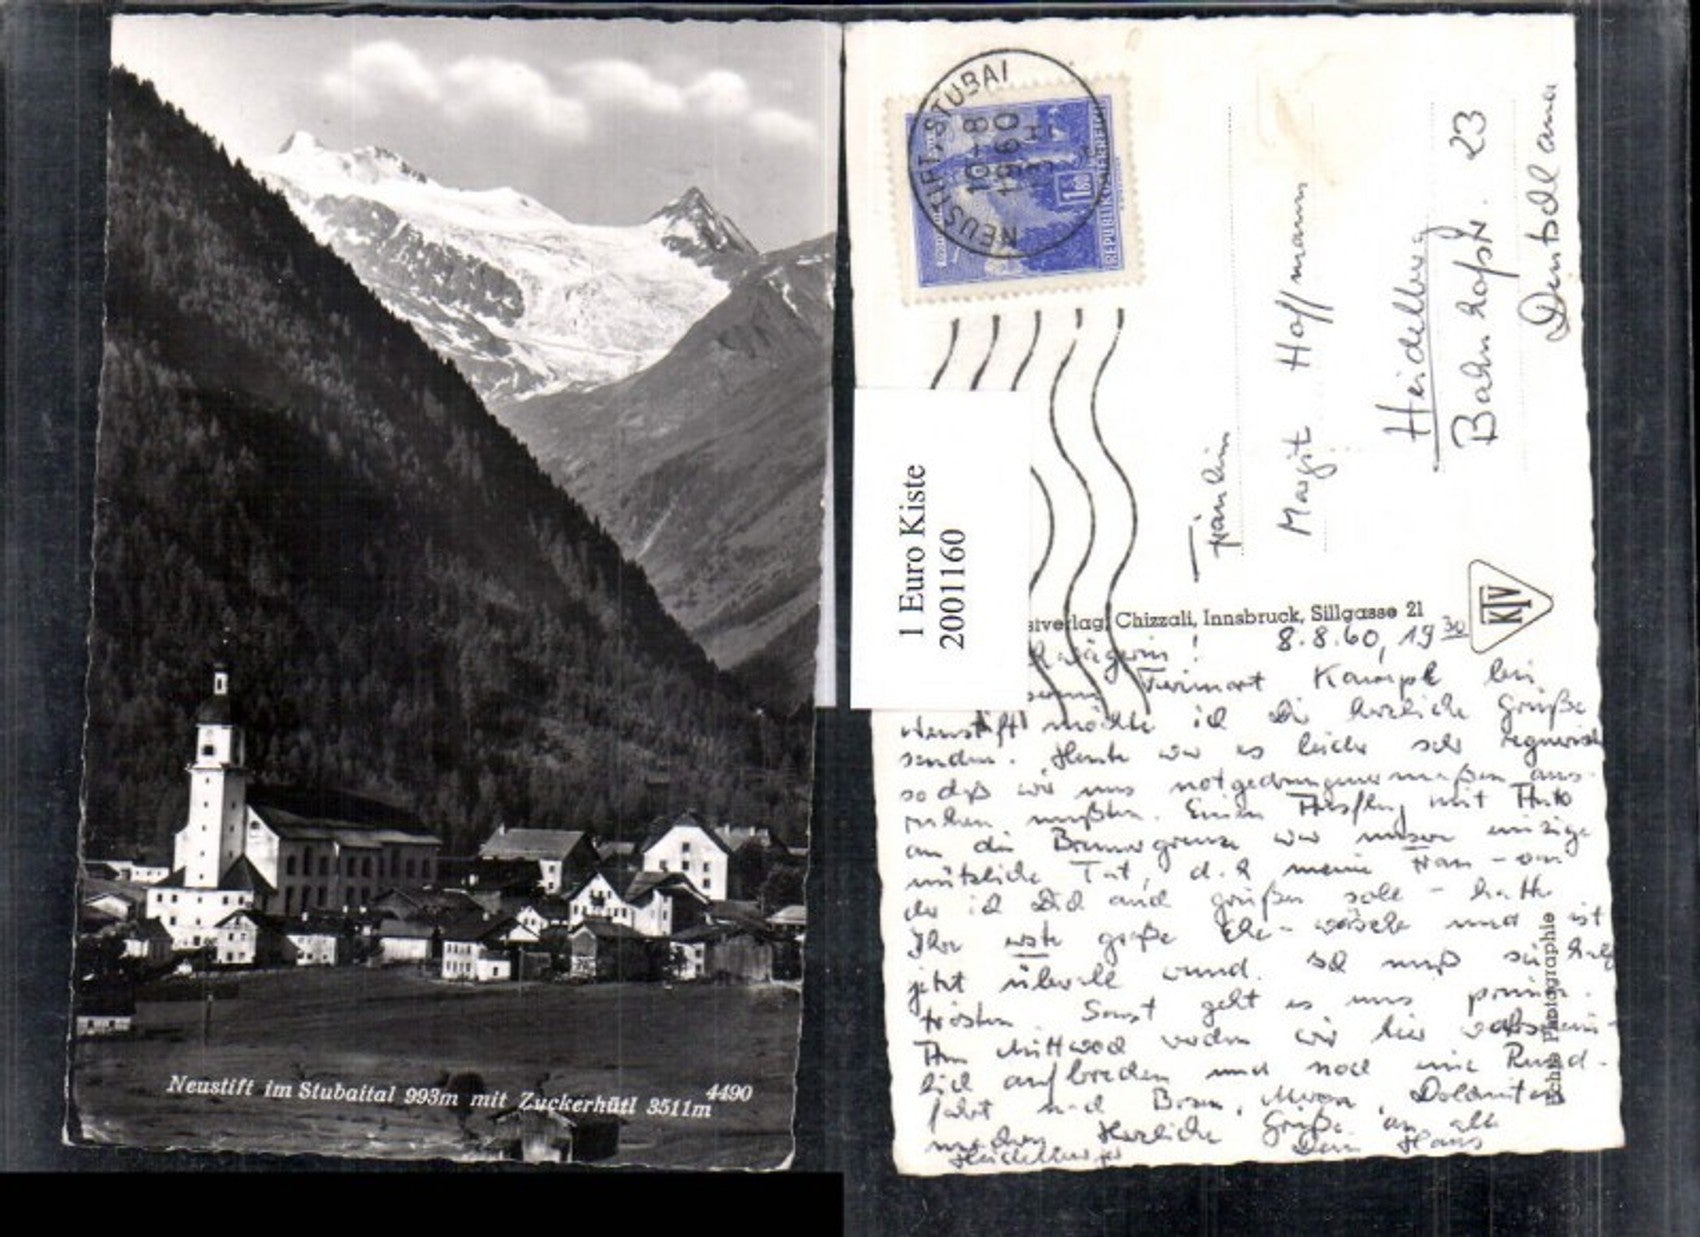 Neustift im Stubaital 993m mit Zuckerhütl 3511m
4490
NEUSTIFT, STUBAI
10-8
1960
REPUBLIK ÖSTERREICH
1 Euro Kiste
2001160
Fräulein
Margit Hoffmann
Heidelberg
Bahnhofstr. 23
Deutschland
Chizzali, Innsbruck, Sillgasse 21
KTV
8.8.60, 19 30
Kampl bei
Neustift möchte ich Dir herzliche Grüße
senden. Heute war es leider sehr regnerisch
sodaß wir uns notgedrungenermaßen aus-
ruhen mußten. Einen Ausflug mit Auto
an die Brennergrenze war unsere einzige
nützliche Tat, d.h. meine Frau - von
der ich Dich auch grüßen soll - hatte
Ihre erste große Ehe-wäsche und ist
jetzt überall wund. Ich muß sie halt
trösten. Sonst geht es uns prima.
Am Mittwoch werden wir hier wahrschein-
lich aufbrechen und noch eine Rund-
fahrt nach Bozen, Meran, Dolomiten
machen. Herzliche Grüße an alle
Heidelberger Dein Hans
Echte Photographie